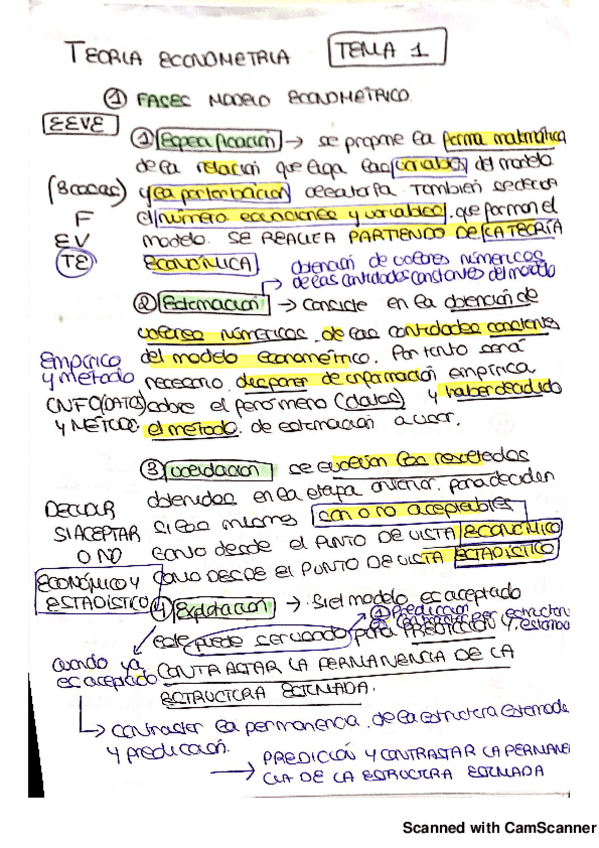 TEORIA ECONOMETRIA TEMA 1
① FASES MODELO ECONOMÉTRICO
EEVE
① Especificación → se propone la forma matemática
de la relación que liga las variables del modelo
(8 cosas) y la perturbación aleatoria. También se decide
F el número ecuaciones y variables que forman el
EV modelo. SE REALIZA PARTIENDO DE LA TEORÍA
TE ECONÓMICA
obtención de valores numéricos
de las cantidades constantes del modelo
② Estimación → consiste en la obtención de
valores numéricos de las cantidades constantes
Empírico del modelo econométrico. Por tanto será
y método necesario disponer de información empírica
INFO(DATOS) sobre el fenómeno (datos) y haber decidido
Y MÉTODO el método de estimación a usar.
③ Validación se evalúan los resultados
obtenidos en la etapa anterior para decidir
DECIDIR
SI ACEPTAR si los mismos son o no aceptables
O NO tanto desde el PUNTO DE VISTA ECONÓMICO
ECONÓMICO Y ESTADÍSTICO como DESDE EL PUNTO DE VISTA ESTADÍSTICO
④ Explotación → Si el modelo es aceptado
① Predicción
este puede ser usado para PREDICCIÓN Y
cuando ya es aceptado CONTRASTAR LA PERMANENCIA DE LA
ESTRUCTURA ESTIMADA.
↳ contrastar la permanencia de la estructura estimada
y predicción.
→ PREDICIÓN Y CONTRASTAR LA PERMANE
CIA DE LA ESTRUCTURA ESTIMADA
Scanned with CamScanner